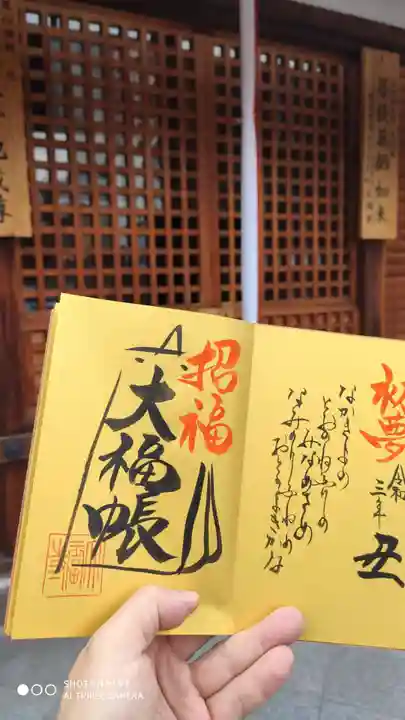 初夢
令和三年
丑
なかきよの
とおのねふりの
みなめさめ
なみのりふねの
おとのよきかな
招福
大福帳
如来
地蔵尊
AI TRIPLE CAMERA